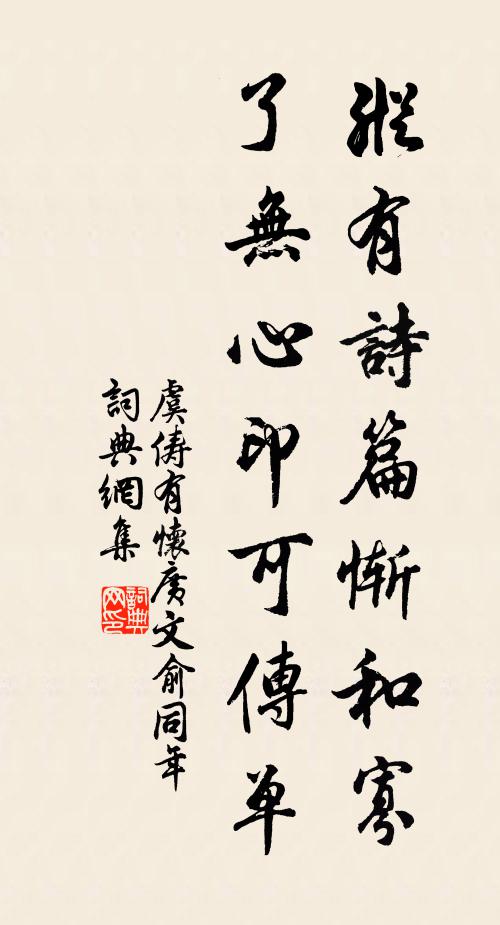 縱有詩篇慚和寡
了無心印可傳單
虞儔有懷廣文俞同年
詞典網集
詞典
网印